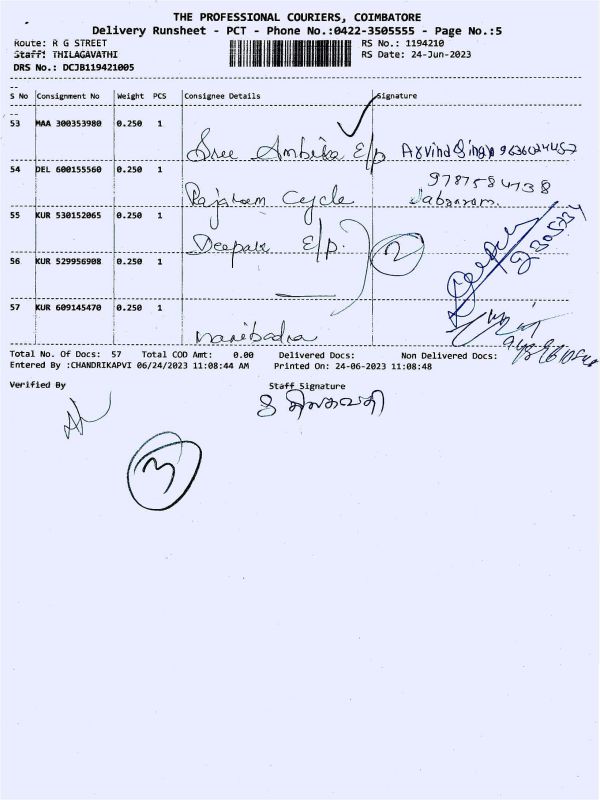 THE PROFESSIONAL COURIERS, COIMBATORE
Delivery Runsheet - PCT - Phone No.:0422-3505555 - Page No.:5
Route: R G STREET RS No.: 1194210
Staff: THILAGAVATHI RS Date: 24-Jun-2023
DRS No.: DCJB119421005
S No Consignment No Weight PCS Consignee Details Signature
53 MAA 300353980 0.250 1
Sree Ambika E/p Arvind Singh
54 DEL 600155560 0.250 1
9787584738
Rajaram Cycle
55 KUR 530152065 0.250 1
Deepak E/p. 2
56 KUR 529956908 0.250 1
57 KUR 609145470 0.250 1
Manibadra
Total No. Of Docs: 57 Total COD Amt: 0.00 Delivered Docs: Non Delivered Docs:
Entered By :CHANDRIKAPVI 06/24/2023 11:08:44 AM Printed On: 24-06-2023 11:08:48
Verified By Staff Signature
திலகவதி
3